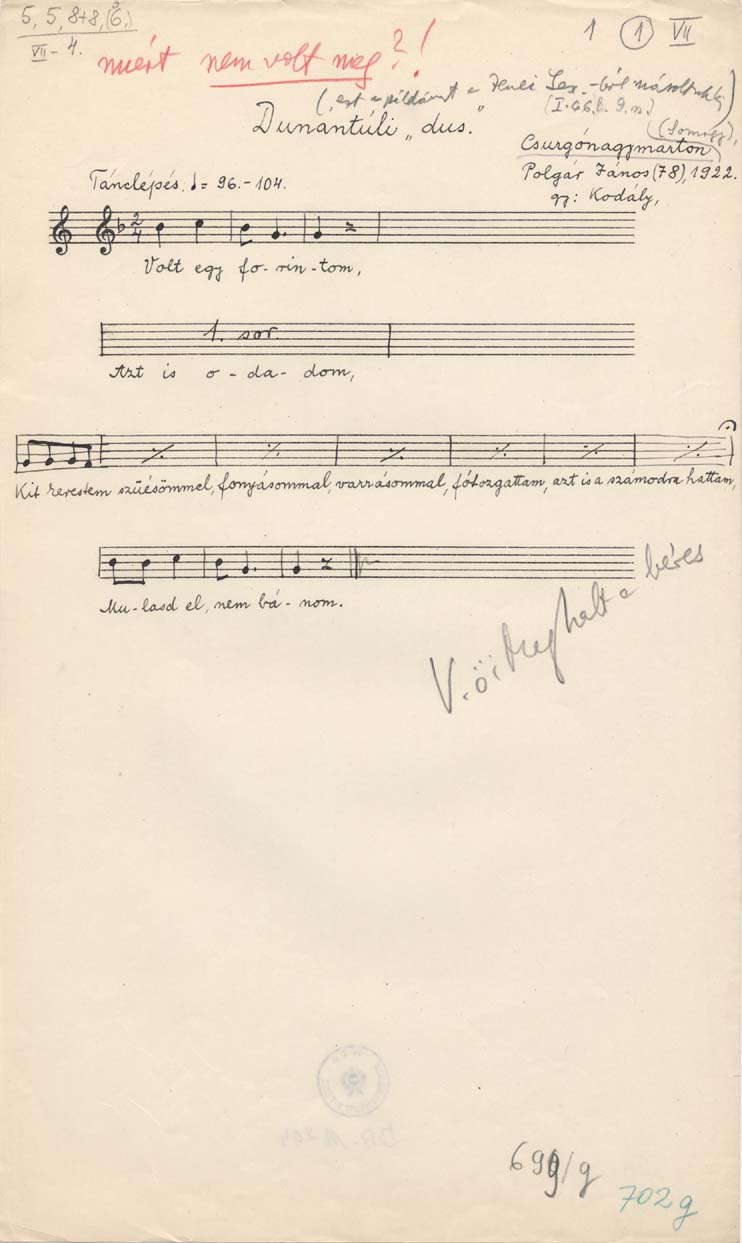 5, 5, 8+8, (6,)
VII - 4.
1 1 VII
miért nem volt meg?!
(ezt a példányt a Zenei Lex.-ból másoltuk ki)
(I. 466. l. 9. sz.)
Dunantúli „dus."
(Somogy),
Csurgónagymarton
Polgár János (78), 1922.
gy: Kodály,
Tánclépés. ♩= 96.-104.
2/4
Volt egy fo-rin-tom,
1. sor.
Azt is o-da-dom,
Kit kerestem szűésömmel, fonyásommal, varrásommal, fótozgattam, azt is a számodra hattam,
Mu-lasd el, nem bá-nom.
V.ö: Meghalt a béres
699/g
702 g